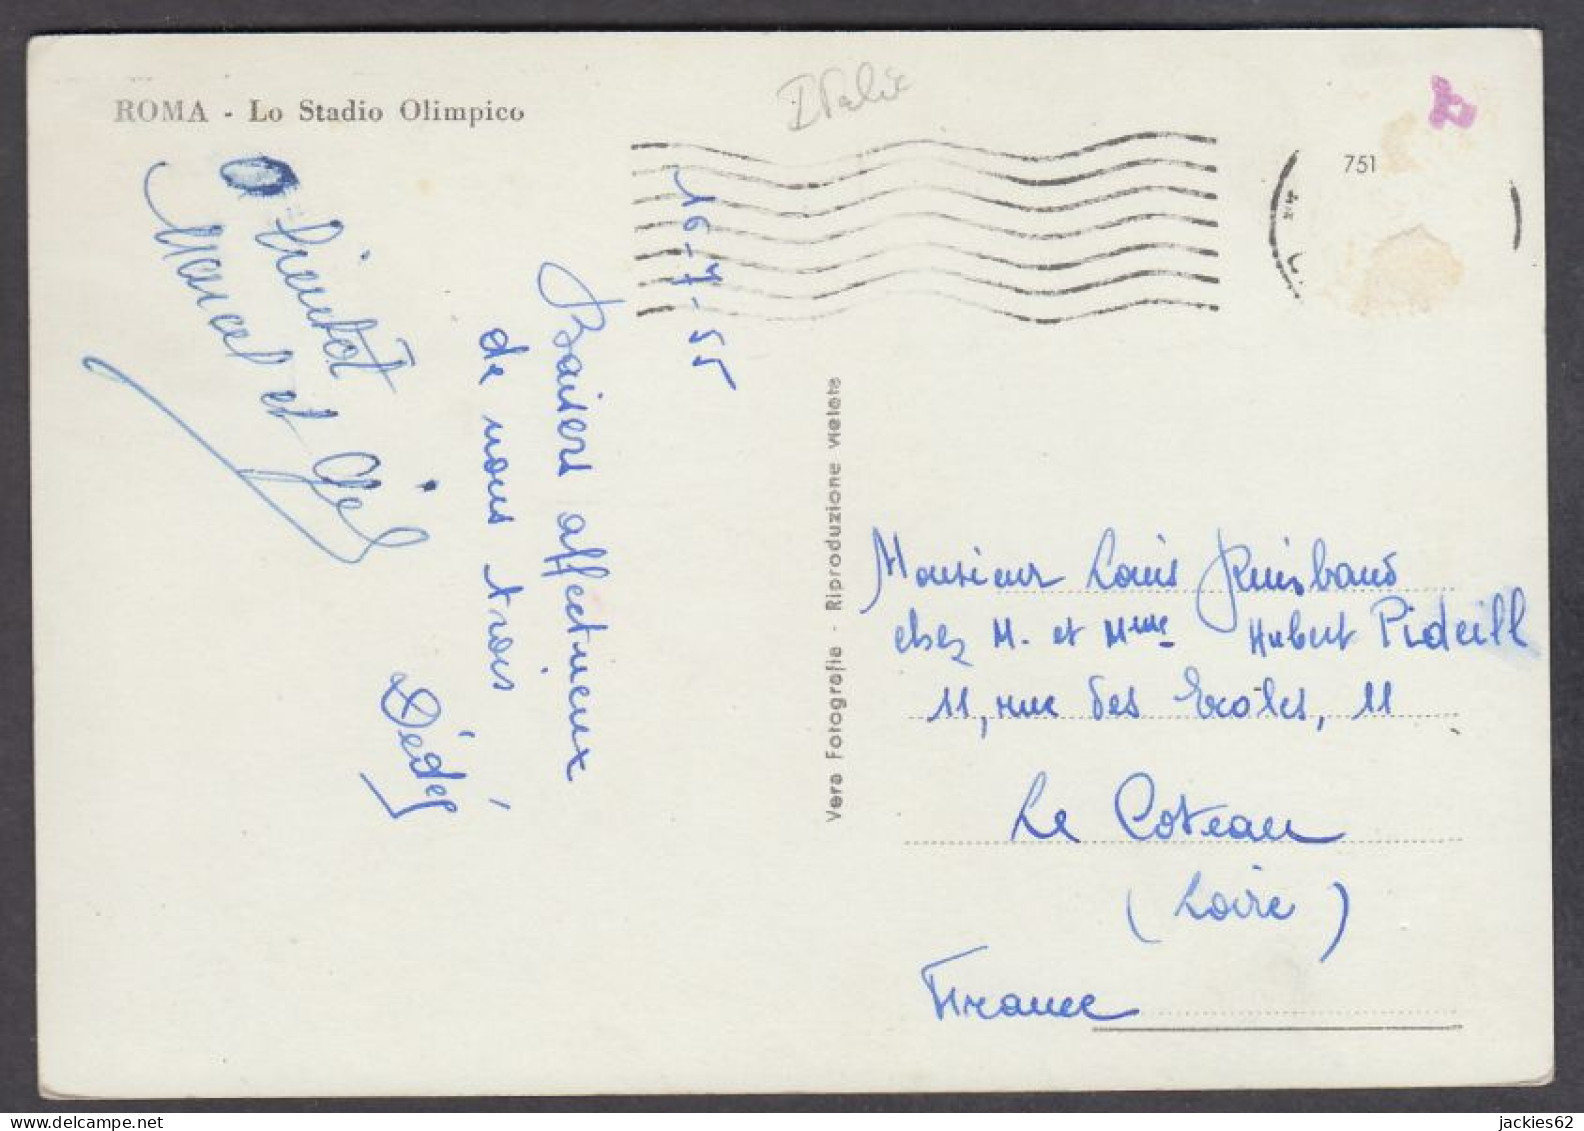 ROMA - Lo Stadio Olimpico
Italie
751
16-7-55
Baisers affectueux
de nous trois
Dédée
à bientôt
Marcel et
Vera Fotografia - Riproduzione vietata
Monsieur Louis
chez M. et Mme Hubert Pideill
11, rue des Ecoles, 11
Le Coteau
(Loire)
France
jackies62
www.delcampe.net